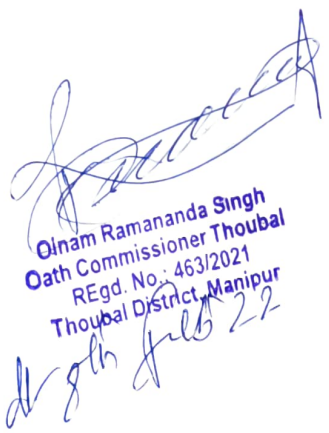 Oinam Ramananda Singh
Oath Commissioner Thoubal
REgd. No.: 463/2021
Thoubal District, Manipur
8th Feb 22